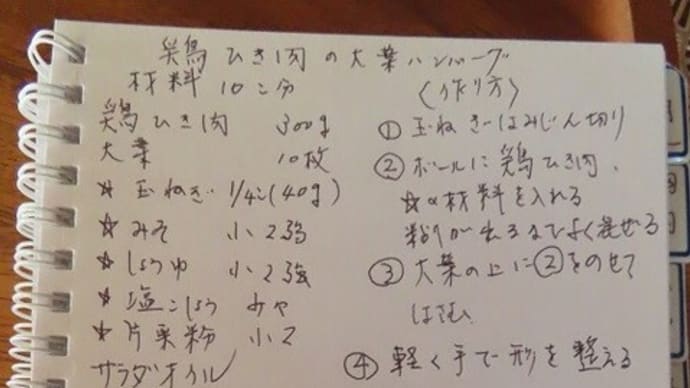 鶏ひき肉の大葉ハンバーグ
材料 10コ分
鶏ひき肉 300g
大葉 10枚
☆玉ねぎ 1/4コ(40g)
☆みそ 小2弱
☆しょうゆ 小2強
☆塩こしょう
☆片栗粉 小2
サラダオイル
〈作り方〉
①玉ねぎはみじん切り
②ボールに鶏ひき肉、
☆の材料を入れる
粘りが出るまでよく混ぜる
③大葉の上に②をのせて
はさむ
④軽く手で形を整える